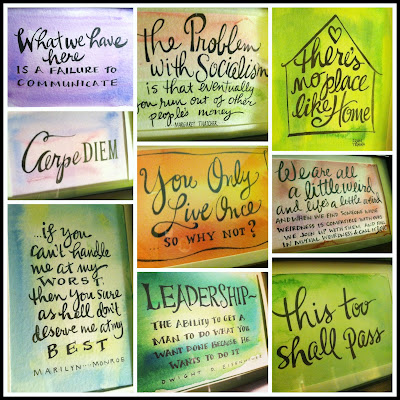 What we have
here
IS A FAILURE TO
COMMUNICATE
the Problem
with Socialism
is that eventually
you run out of other
people's money
MARGARET THATCHER
there's
no place
like Home
Carpe DIEM
You Only
Live Once
... SO WHY NOT?
We are all
a little weird,
and life's a little weird
AND WHEN WE FIND SOMEONE WHOSE
WEIRDNESS IS COMPATIBLE WITH OURS
WE JOIN UP WITH THEM AND FALL
IN MUTUAL WEIRDNESS & CALL IT
...if you
can't handle
me at my
WORST.
then you sure
as hell don't
deserve me at my
BEST
MARILYN MONROE
LEADERSHIP~
THE ABILITY TO GET A
MAN TO DO WHAT YOU
WANT DONE BECAUSE HE
WANTS TO DO IT
DWIGHT D. EISENHOWER
this too
shall pass